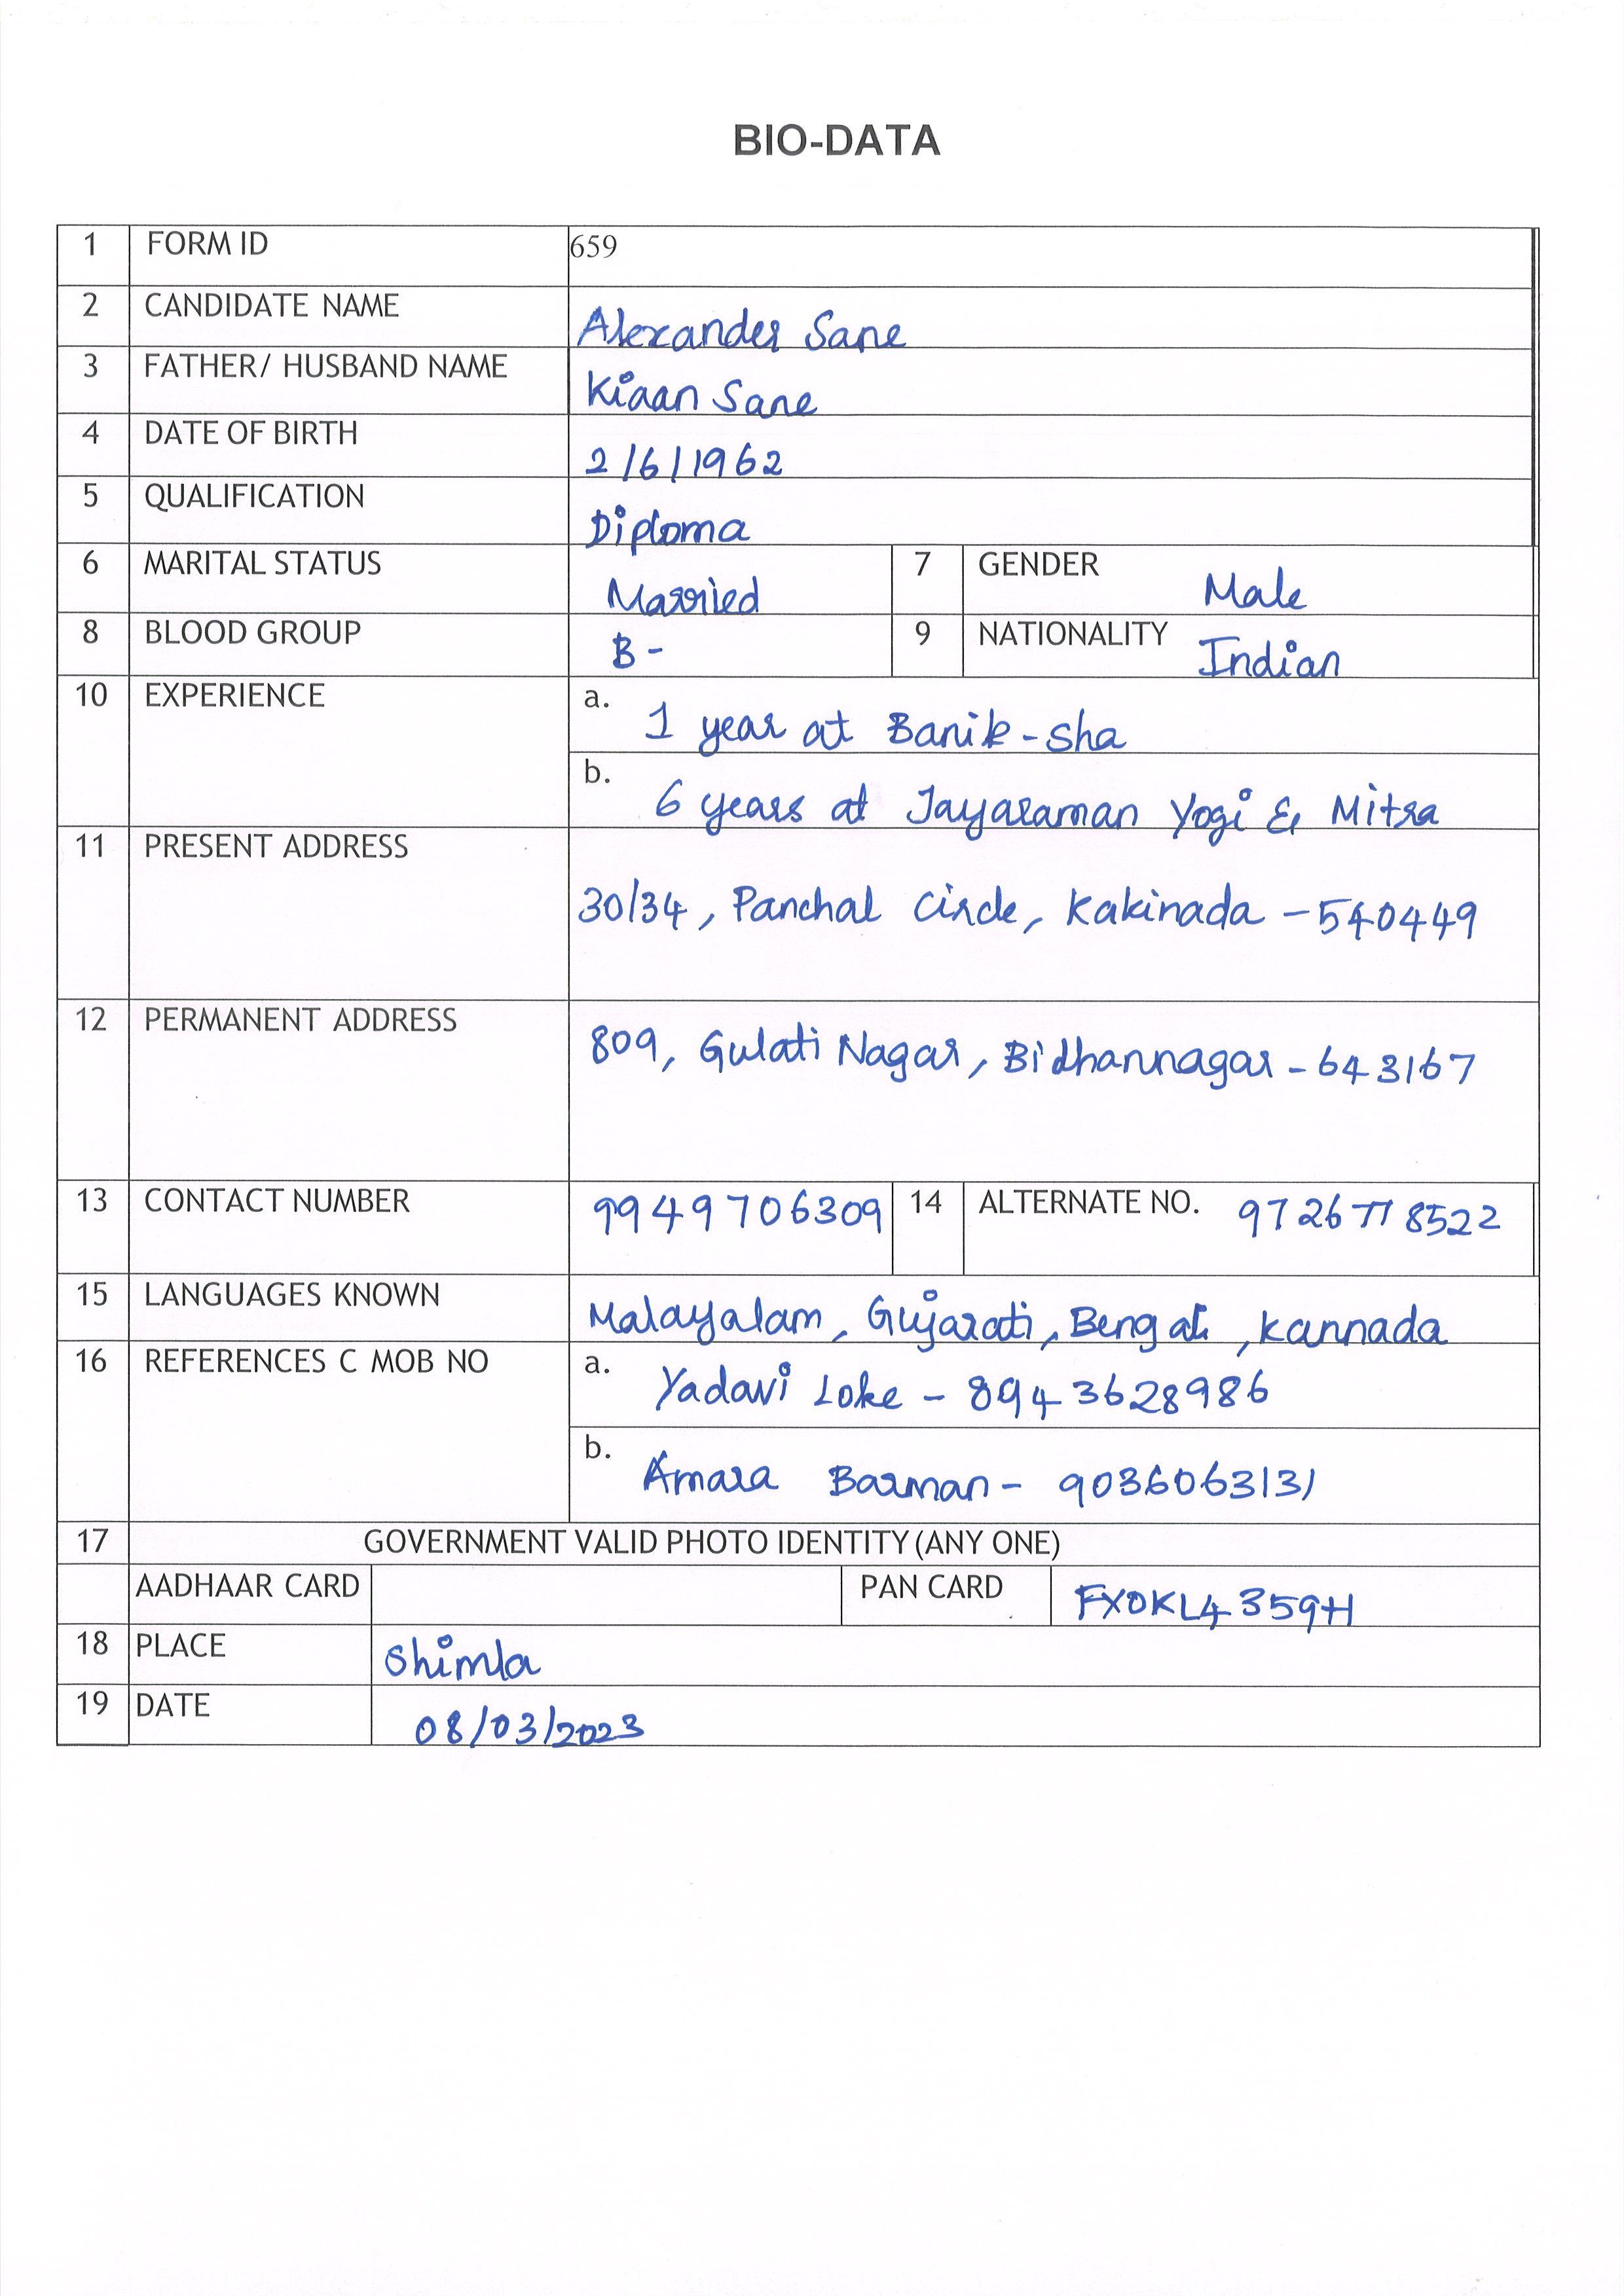 BIO-DATA
1 FORM ID 659
2 CANDIDATE NAME Alexander Sane
3 FATHER/ HUSBAND NAME Kiaan Sane
4 DATE OF BIRTH 2/6/1962
5 QUALIFICATION Diploma
6 MARITAL STATUS Married 7 GENDER Male
8 BLOOD GROUP B- 9 NATIONALITY Indian
10 EXPERIENCE a. 1 year at Banik-Sha
b. 6 years at Jayaraman Yogi & Mitra
11 PRESENT ADDRESS 30/34, Panchal Circle, Kakinada -540449
12 PERMANENT ADDRESS 809, Gulati Nagar, Bidhannagar-643167
13 CONTACT NUMBER 9949706309 14 ALTERNATE NO. 9726778522
15 LANGUAGES KNOWN Malayalam, Gujarati, Bengali, Kannada
16 REFERENCES C MOB NO a. Yadavi Loke - 8943628986
b. Amara Barman- 9036063131
17 GOVERNMENT VALID PHOTO IDENTITY (ANY ONE)
AADHAAR CARD PAN CARD FXOKL4359H
18 PLACE Shimla
19 DATE 08/03/2023